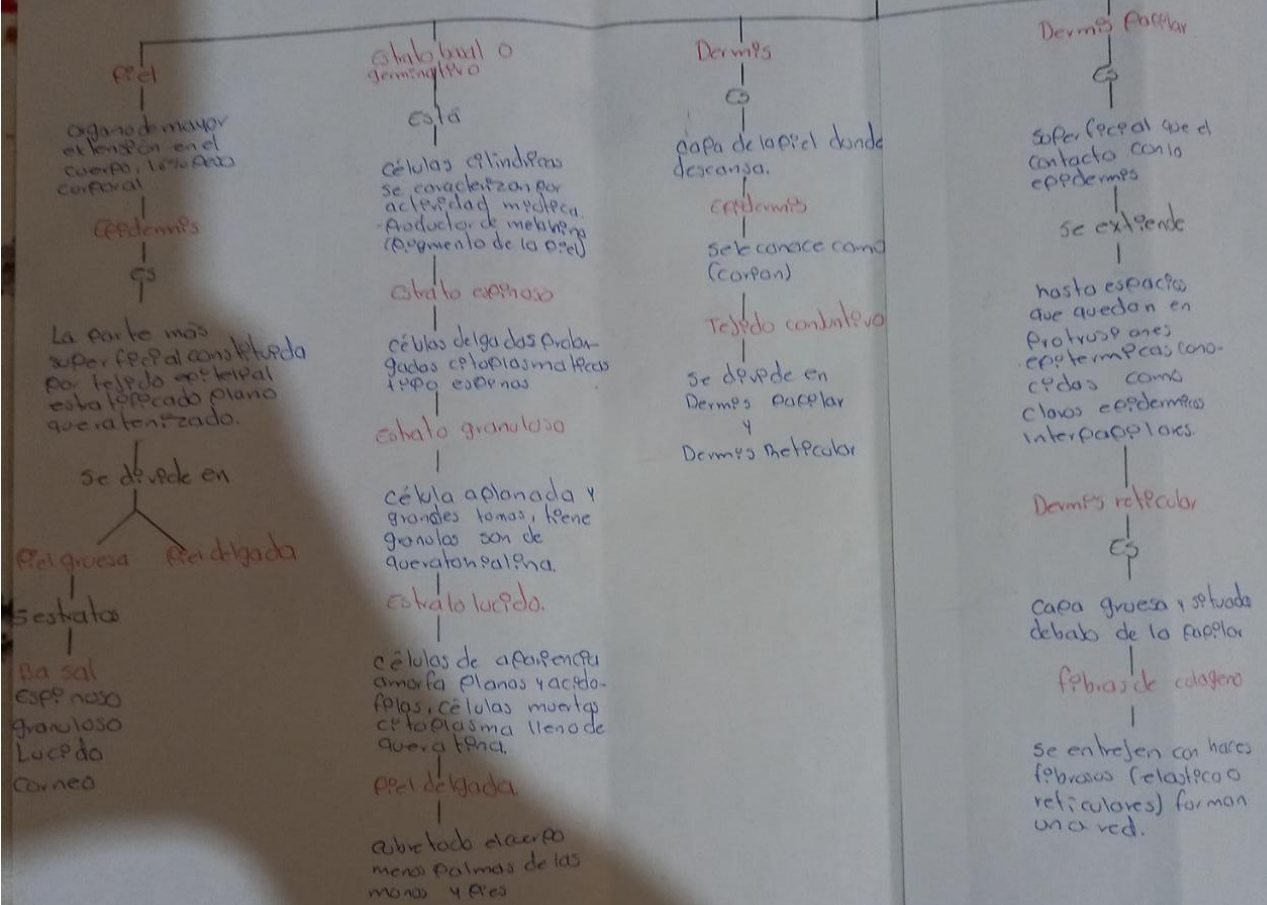 Piel
organo de mayor
extensión en el
cuerpo, 16% peso
corporal
Epidermis
es
La parte más
superficial constituida
por tejido epitelial
estratificado plano
queratenizado.
se divide en
Piel gruesa
Piel delgada
5 estratos
Basal
Espinoso
granuloso
Lucido
Corneo
Estrato basal o
germinativo
Está
células cilindricas
se caracterizan por
actividad mitotica.
Productor de melanina
(pigmento de la piel)
Estrato espinoso
células delgadas prolon-
gadas citoplasmaticas
tipo espinas
Estrato granuloso
célula aplanada y
grandes tomas, tiene
granulos son de
queratohialina.
Estrato lucido.
células de apariencia
amorfa planas y acido-
filas, células muertas
citoplasma lleno de
queratina.
Piel delgada.
cubre todo el cuerpo
menos palmas de las
manos y pies
Dermis
Es
capa de la piel donde
descansa.
Epidermis
se le conoce como
(corion)
Tejido conjuntivo
se divide en
Dermis papilar
y
Dermis reticular
Dermis papilar
Es
superficial que el
contacto con la
epidermis
se extiende
hasta espacios
que quedan en
protrusiones
epitermicas cono-
cidas como
clavos epidermicos
interpapilares.
Dermis reticular
Es
capa gruesa y situada
debajo de la papilar
fibras de colageno
se entrejen con haces
fibrosos (elastico o
reticulares) forman
una red.